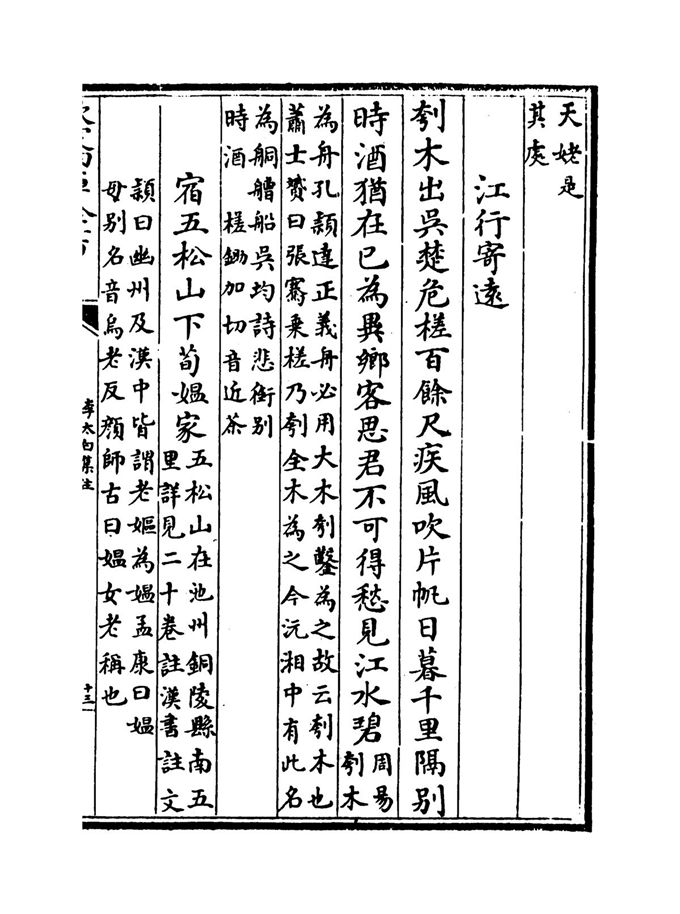 天姥是
其處
江行寄遠
刳木出吳楚危槎百餘尺疾風吹片帆日暮千里隔别
時酒猶在已為異鄉客思君不可得愁見江水碧
周易
刳木
為舟孔頴達正義舟必用大木刳鑿為之故云刳木也
蕭士贇曰張騫乗槎乃刳全木為之今沅湘中有此名
為舸艚船吳均詩悲銜别
時酒 槎鋤加切音近茶
宿五松山下荀媪家
五松山在池州銅陵縣南五
里詳見二十卷註漢書註文
頴曰幽州及漢中皆謂老嫗為媪孟康曰媪
母别名音烏老反顔師古曰媪女老稱也
李太白集注
十三